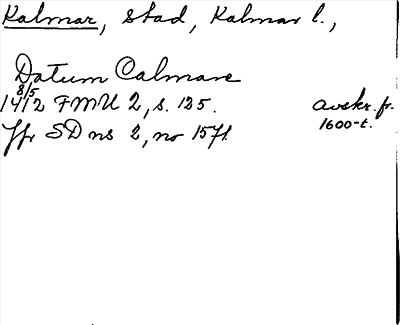 Kalmar, stad, Kalmar l.,
Datum Calmare
8/5
1412 FMU 2, s. 125. avskr. fr.
1600-t.
Jfr SD ns 2, no 1571.